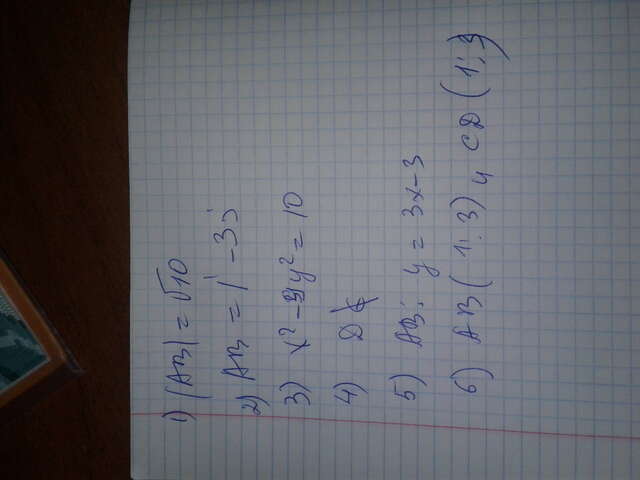 1) |AB| = √10
2) AB = i - 3j
3) x² - 9y² = 10
4) D
5) AB: y = 3x - 3
6) AB (1; 3) и CD (1; 3)